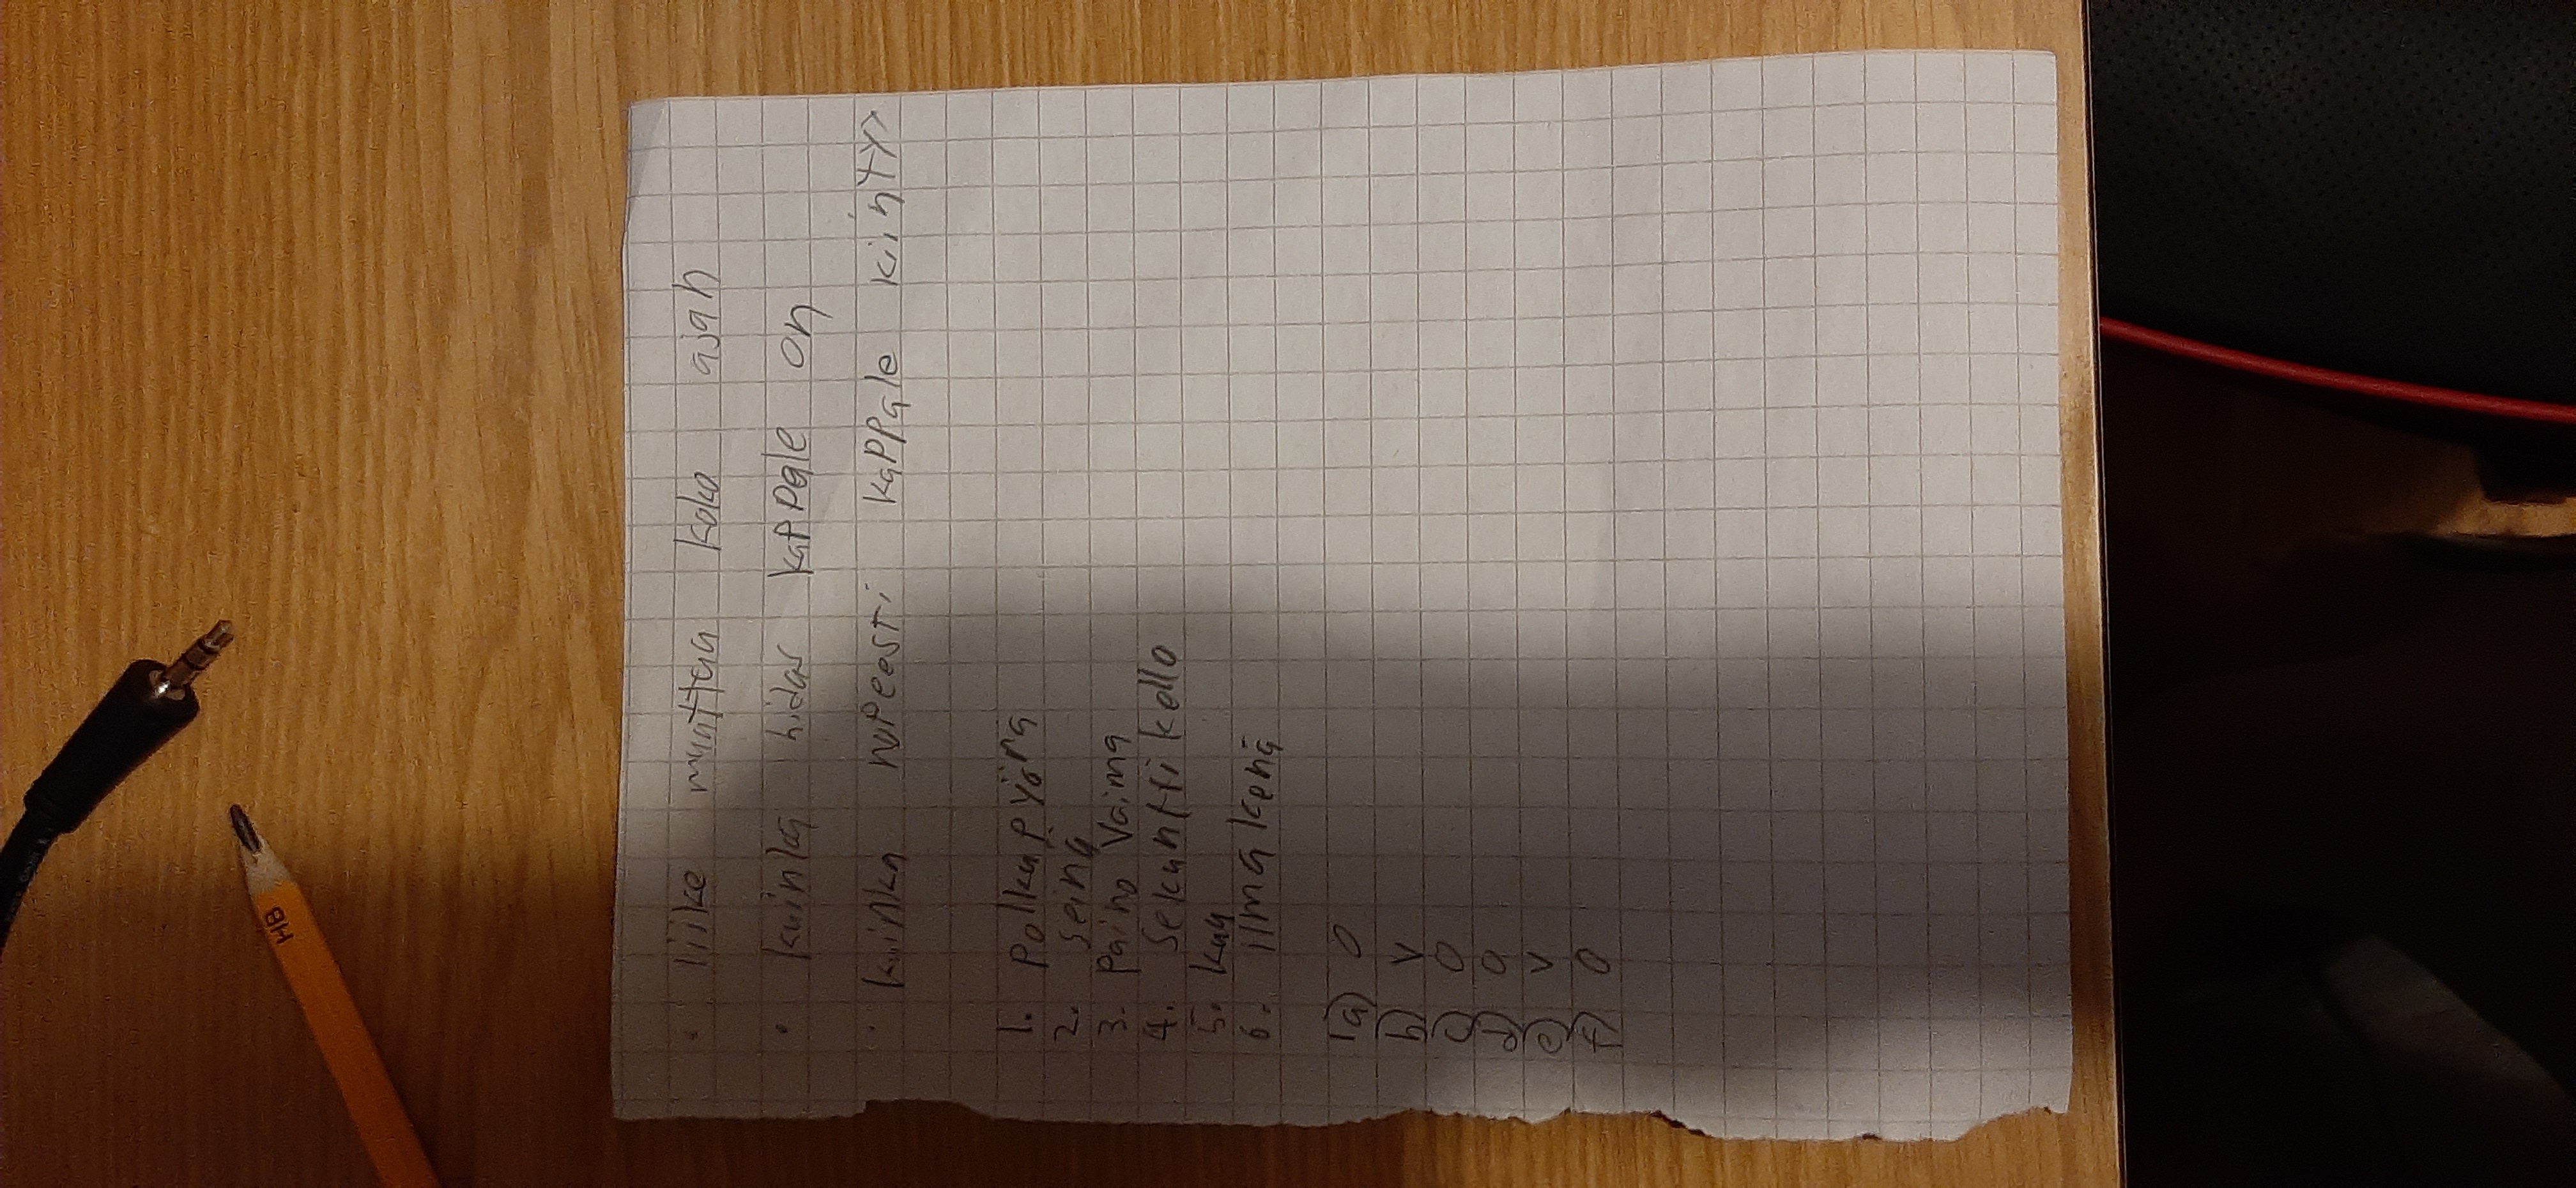 · liike muuttaa koko ajan
· kuinka hidas kappale on
· kuinka nopeesti kappale kiihtyy
1. Polkupyörä
2. seinä
3. paino Vaima
4. Sekunttikello
5. kuu
6. ilma kehä
1a) O
b) V
c) O
d) O
e) V
f) O
HB